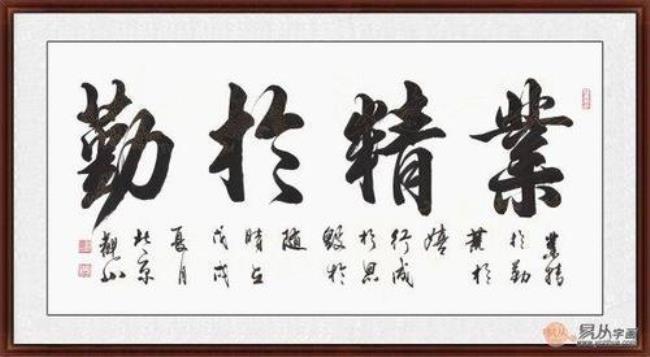 業精於勤
業精
於勤
荒於
嬉
行成
於思
毀於
随
時在
戊戌
夏月
北京
觀山
易从字画